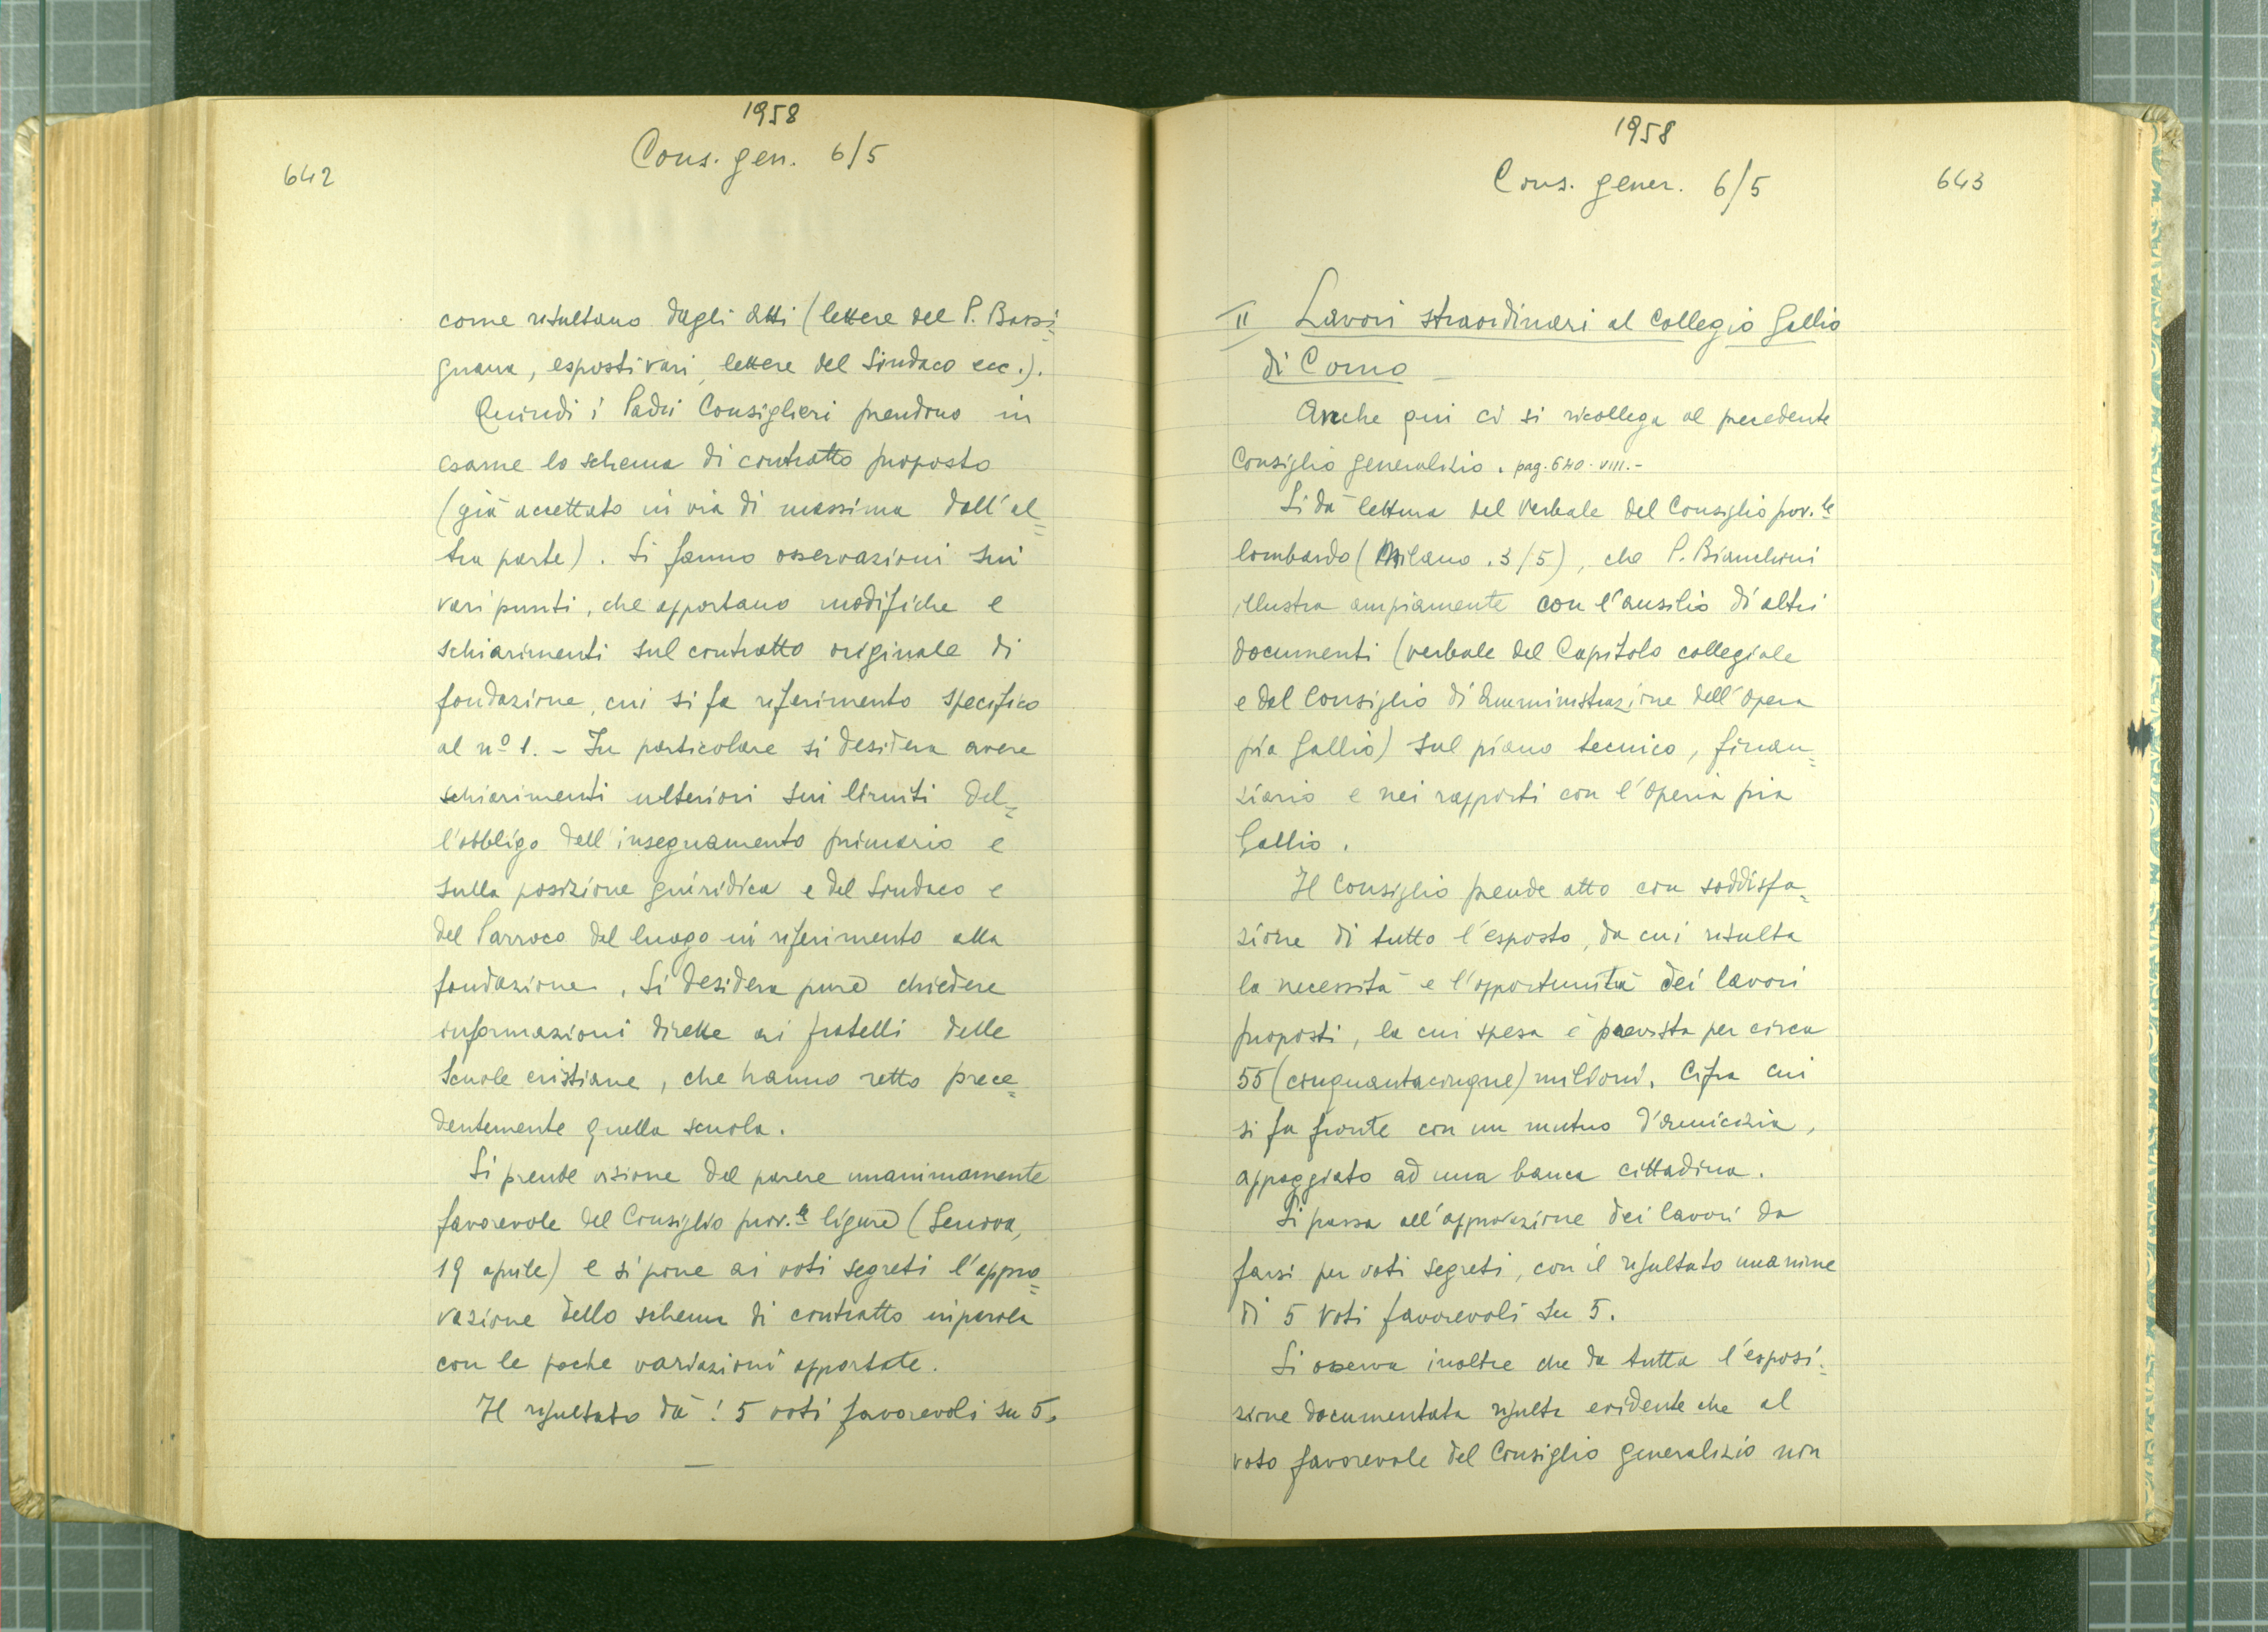 1958
Cons. gen. 6/5
642
come risultano dagli atti (lettere del P. Bassi=
gnana, esposti vari, lettere del Sindaco ecc.).
Quindi i Padri Consiglieri prendono in
esame lo schema di contratto proposto
(già accettato in via di massima dall'al=
tra parte). Si fanno osservazioni sui
vari punti, che apportano modifiche e
schiarimenti sul contratto originale di
fondazione, cui si fa riferimento specifico
al nº 1. - In particolare si desidera avere
schiarimenti ulteriori sui limiti del=
l'obbligo dell'insegnamento primario e
sulla posizione giuridica e del Sindaco e
del Parroco del luogo in riferimento alla
fondazione. Si desidera pure chiedere
informazioni dirette ai fratelli delle
Scuole cristiane, che hanno retto prece=
dentemente quella scuola.
Si prende visione del parere unanimamente
favorevole del Consiglio prov.le ligure (Genova,
19 aprile) e si pone ai voti segreti l'appro=
vazione dello schema di contratto in parola
con le poche variazioni apportate.
Il risultato dà: 5 voti favorevoli su 5.
1958
Cons. gener. 6/5
643
II Lavori straordinari al Collegio Gallio
di Como -
Anche qui ci si ricollega al precedente
Consiglio generalizio. pag. 640. VIII.-
Si dà lettura del verbale del Consiglio prov.le
lombardo (Milano. 3/5), che P. Bianchini
illustra ampiamente con l'ausilio di altri
documenti (verbale del Capitolo collegiale
e del Consiglio di Amministrazione dell'Opera
pia Gallio) sul piano tecnico, finan=
ziario e nei rapporti con l'Opera pia
Gallio.
Il Consiglio prende atto con soddisfa=
zione di tutto l'esposto, da cui risulta
la necessità e l'opportunità dei lavori
proposti, la cui spesa è prevista per circa
55 (cinquantacinque) milioni. Cifra cui
si fa fronte con un mutuo d'amicizia,
appoggiato ad una banca cittadina.
Si passa all'approvazione dei lavori da
farsi per voti segreti, con il risultato unanime
di 5 voti favorevoli su 5.
Si osserva inoltre che da tutta l'esposi=
zione documentata risulta evidente che al
voto favorevole del Consiglio generalizio non